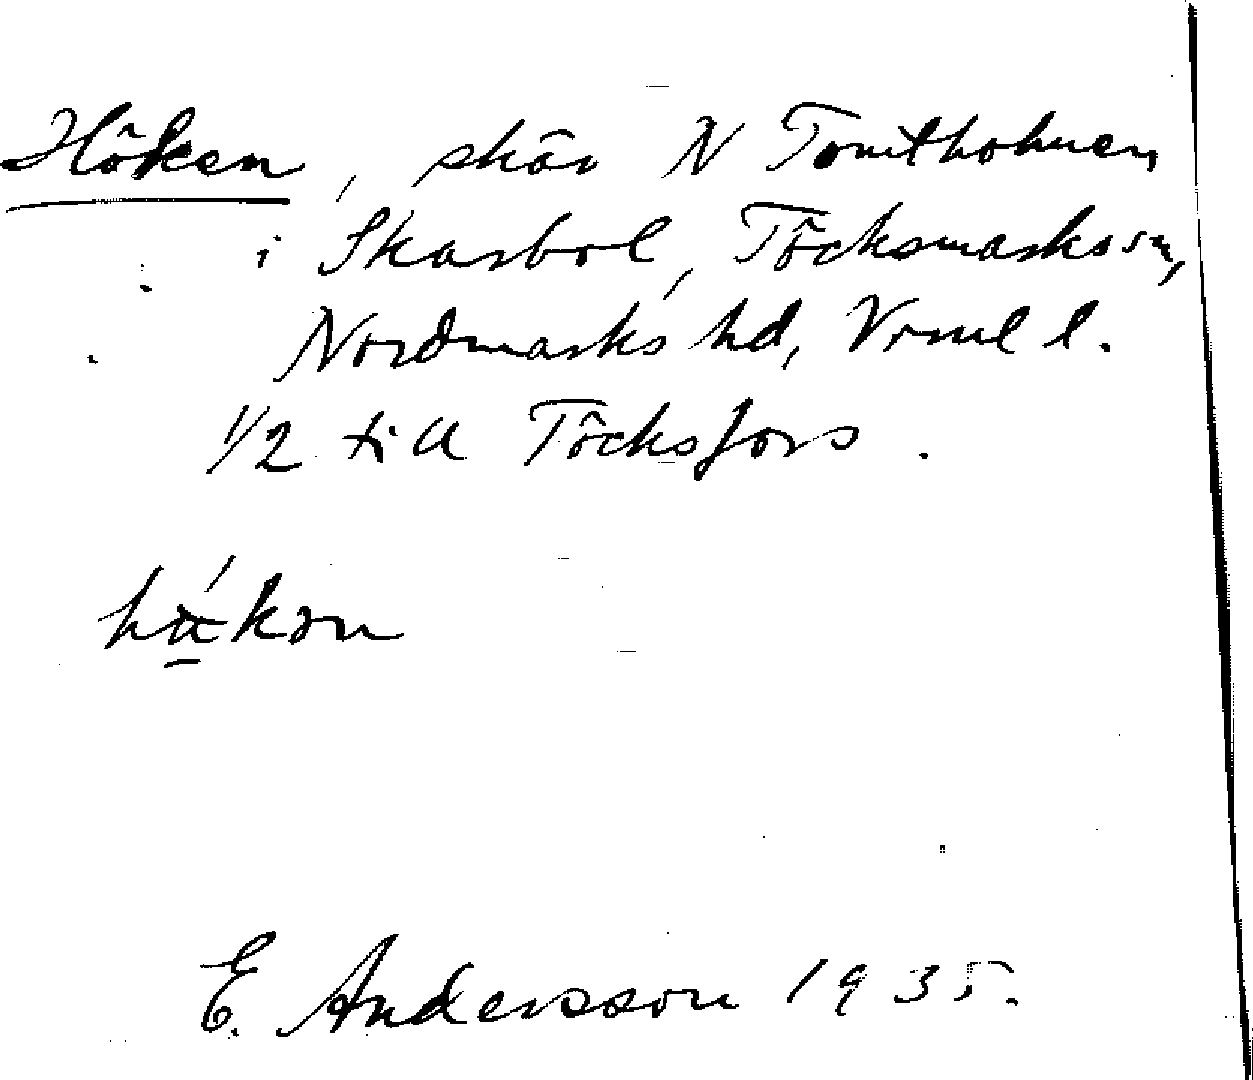 Höken, skär N Tomtholmen
i Skarbol, Töcksmarks sn,
Nordmarks hd, Vrml l.
1/2 till Töcksfors.
E. Andersson 1935.